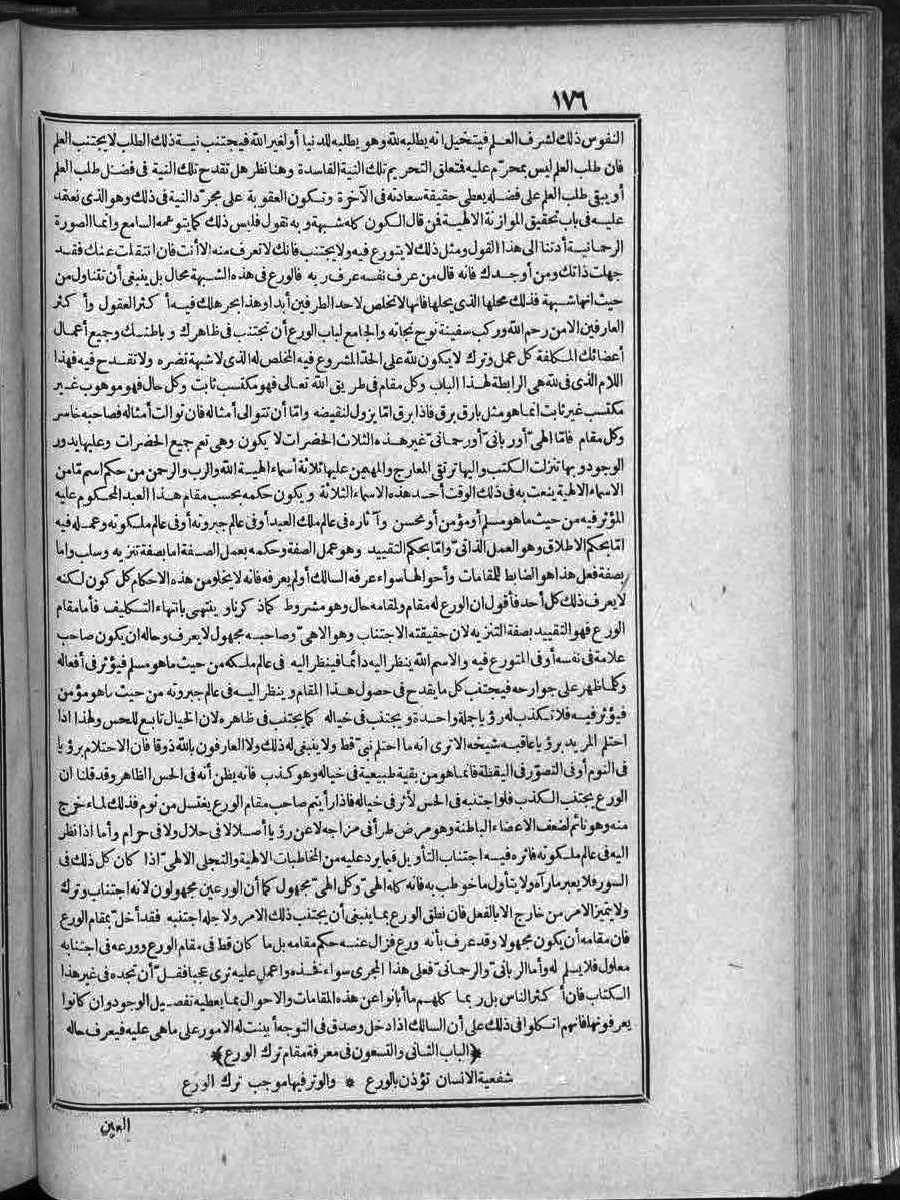 ١٧٦
النفوس ذلك لشرف العلم فيتخيل انه يطلبه لله وهو يطلبه للدنيا أو لغير الله فيجتنب نية ذلك الطلب لا يجتنب العلم
فان طلب العلم ليس بمحرّم عليه فتعلق التحريم تلك النية الفاسدة وهنا نظر هل تقدح تلك النية فى فضل طلب العلم
أو يبقى طلب العلم على فضله يعطى حقيقة سعادته فى الآخرة وتكون العقوبة على مجرّد النية فى ذلك وهو الذى نعتقد
عليه فى باب تحقيق الموازنة الالهية فمن قال الكون كله شبهة وبه نقول فليس ذلك كما يتوهمه السامع وانما الصورة
الرحمانية أدتنا الى هذا القول ومثل ذلك لا يتورع فيه ولا يجتنب فانك لا تعرف منه الا أنت فان انتقلت عنك فقد
جهلت ذاتك ومن أوجدك فانه قال من عرف نفسه عرف ربه فالورع فى هذه الشبهة محال بل ينبغى أن تتناول من
حيث انها شبهة فذلك محلها الذى يحلها فانها لا تخلص لاحد الطرفين أبدا وهذا بحر هلك فيه أكثر العقول وأكثر
العارفين الا من رحم الله وركب سفينة نوح نجاته والجامع لباب الورع أن تجتنب فى ظاهرك وباطنك وجميع أعمال
أعضائك المكلفة كل عمل وترك لا يكون لله على الحدّ المشروع فيه المخلص له الذى لا شبهة تضره ولا تقدح فيه فهذا
اللام الذى فى لله هى الرابطة لهذا الباب وكل مقام فى طريق الله تعالى فهو مكتسب ثابت وكل حال فهو موهوب غير
مكتسب غير ثابت انما هو مثل بارق برق فاذا برق امّا يزول لنقيضه وامّا أن تتوالى أمثاله فان توالت أمثاله فصاحبه خاسر
وكل مقام فامّا الهىّ أو ربانىّ أو رحمانىّ غير هذه الثلاث الحضرات لا يكون وهى تعم جميع الحضرات وعليها يدور
الوجود وبها تنزلت الكتب واليها ترتقى المعارج والمهيمن عليها ثلاثة أسماء الهية الله والرب والرحمن من حكم اسم مّا من
الاسماء الالهية ينعت به فى ذلك الوقت أحد هذه الاسماء الثلاثة ويكون حكمه بحسب مقام هذا العبد المحكوم عليه
المؤثر فيه من حيث ما هو مسلم أو مؤمن أو محسن وآثاره فى عالم ملك العبد أو فى عالم جبروته أو فى عالم ملكوته وعمله فيه
امّا بحكم الاطلاق وهو العمل الذاتىّ وامّا بحكم التقييد وهو عمل الصفة وحكمه بعمل الصفة اما بصفة تنزيه وسلب واما
بصفة فعل هذا هو الضابط للمقامات وأحوالها سواء عرفه السالك أو لم يعرفه فانه لا يخلو من هذه الاحكام كل كون لكنه
لا يعرف ذلك كل أحد فأقول ان الورع له مقام ولمقامه حال وهو مشروط كما ذكرناه وينتهى بانتهاء التكليف فأما مقام
الورع فهو التقييد بصفة التنزيه لان حقيقته الاجتناب وهو الاهىّ وصاحبه مجهول لا يعرف وحاله ان يكون صاحب
علامة فى نفسه أو فى المتورع فيه والاسم الله ينظر اليه دائما فينظر اليه فى عالم ملكه من حيث ما هو مسلم فيؤثر فى أفعاله
وكلما ظهر على جوارحه فيجتنب كل ما يقدح فى حصول هذا المقام وينظر اليه فى عالم جبروته من حيث ما هو مؤمن
فيؤثر فيه فلا تكذب له رؤيا جملة واحدة ويجتنب فى خياله كما يجتنب فى ظاهره لان الخيال تابع للحس ولهذا اذا
احتلم المريد برؤيا عاقبه شيخه الا ترى انه ما احتلم نبىّ قط ولا ينبغى له ذلك ولا العارفون بالله ذوقا فان الاحتلام برؤيا
فى النوم أو فى التصوّر فى اليقظة فانما هو من بقية طبيعية فى خياله وهو كذب فانه يظن أنه فى الحس الظاهر وقد قلنا ان
الورع يجتنب الكذب فلو اجتنبه فى الحس لأثر فى خياله فاذا رأيتم صاحب مقام الورع يغتسل من نوم فذلك لماء خرج
منه وهو نائم لضعف الاعضاء الباطنة وهو مرض طرأ فى مزاجه لا عن رؤيا أصلا لا فى حلال ولا فى حرام وأما اذا نظر
اليه فى عالم ملكوته فاثره فيه اجتناب التأويل فيما يرد عليه من المخاطبات الالهية والتجلى الالهىّ اذا كان كل ذلك فى
السور فلا يعبر ما رآه ولا يتأول ما خوطب به فانه كله الهىّ وكل الهىّ مجهول كما أن الورعين مجهولون لانه اجتناب وترك
ولا يتميز الامر من خارج الا بالفعل فان نطق الورع بما ينبغى أن يجتنب ذلك الامر ولاجله اجتنبه فقد أخلّ بمقام الورع
فان مقامه أن يكون مجهولا وقد عرف بأنه ورع فزال عنه حكم مقامه بل ما كان قط فى مقام الورع وورعه فى اجتنابه
معلول فلا يسلم له وأما الربانىّ والرحمانىّ فعلى هذا المجرى سواء نفذه واعمل عليه ترى عجبا فقلّ أن تجده فى غير هذا
الكتاب فان أكثر الناس بل ربما كلهم ما أبانوا عن هذه المقامات والاحوال بما يعطيه تفصيل الوجود وان كانوا
يعرفونها فانهم اتكلوا فى ذلك على أن السالك اذا دخل وصدق فى التوجه أبينت له الامور على ما هى عليه فيعرف حاله
﴿الباب الثانى والتسعون فى معرفة مقام ترك الورع﴾
شفعية الانسان تؤذن بالورع * والوتر فيها موجب ترك الورع
العين